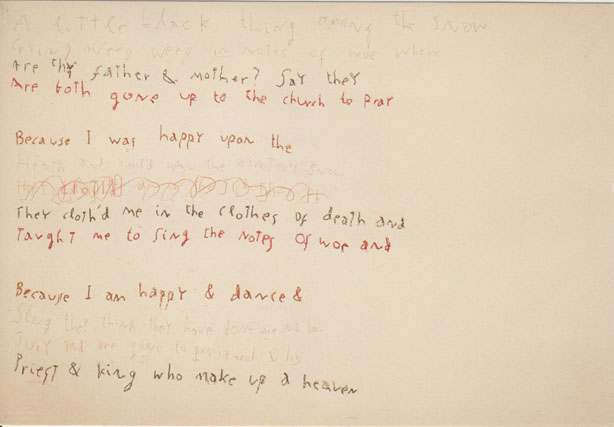 A little black thing among the snow
Crying weep weep in notes of woe where
Are thy father & mother? Say they
Are both gone up to the church to pray
Because I was happy upon the
Heath and smil'd upon the winter's snow
They cloth'd me in the clothes of death and
Taught me to sing the notes of woe and
Because I am happy & dance &
Sing they think they have done me no in
Jury and are gone to praise God & his
Priest & king who make up a heaven